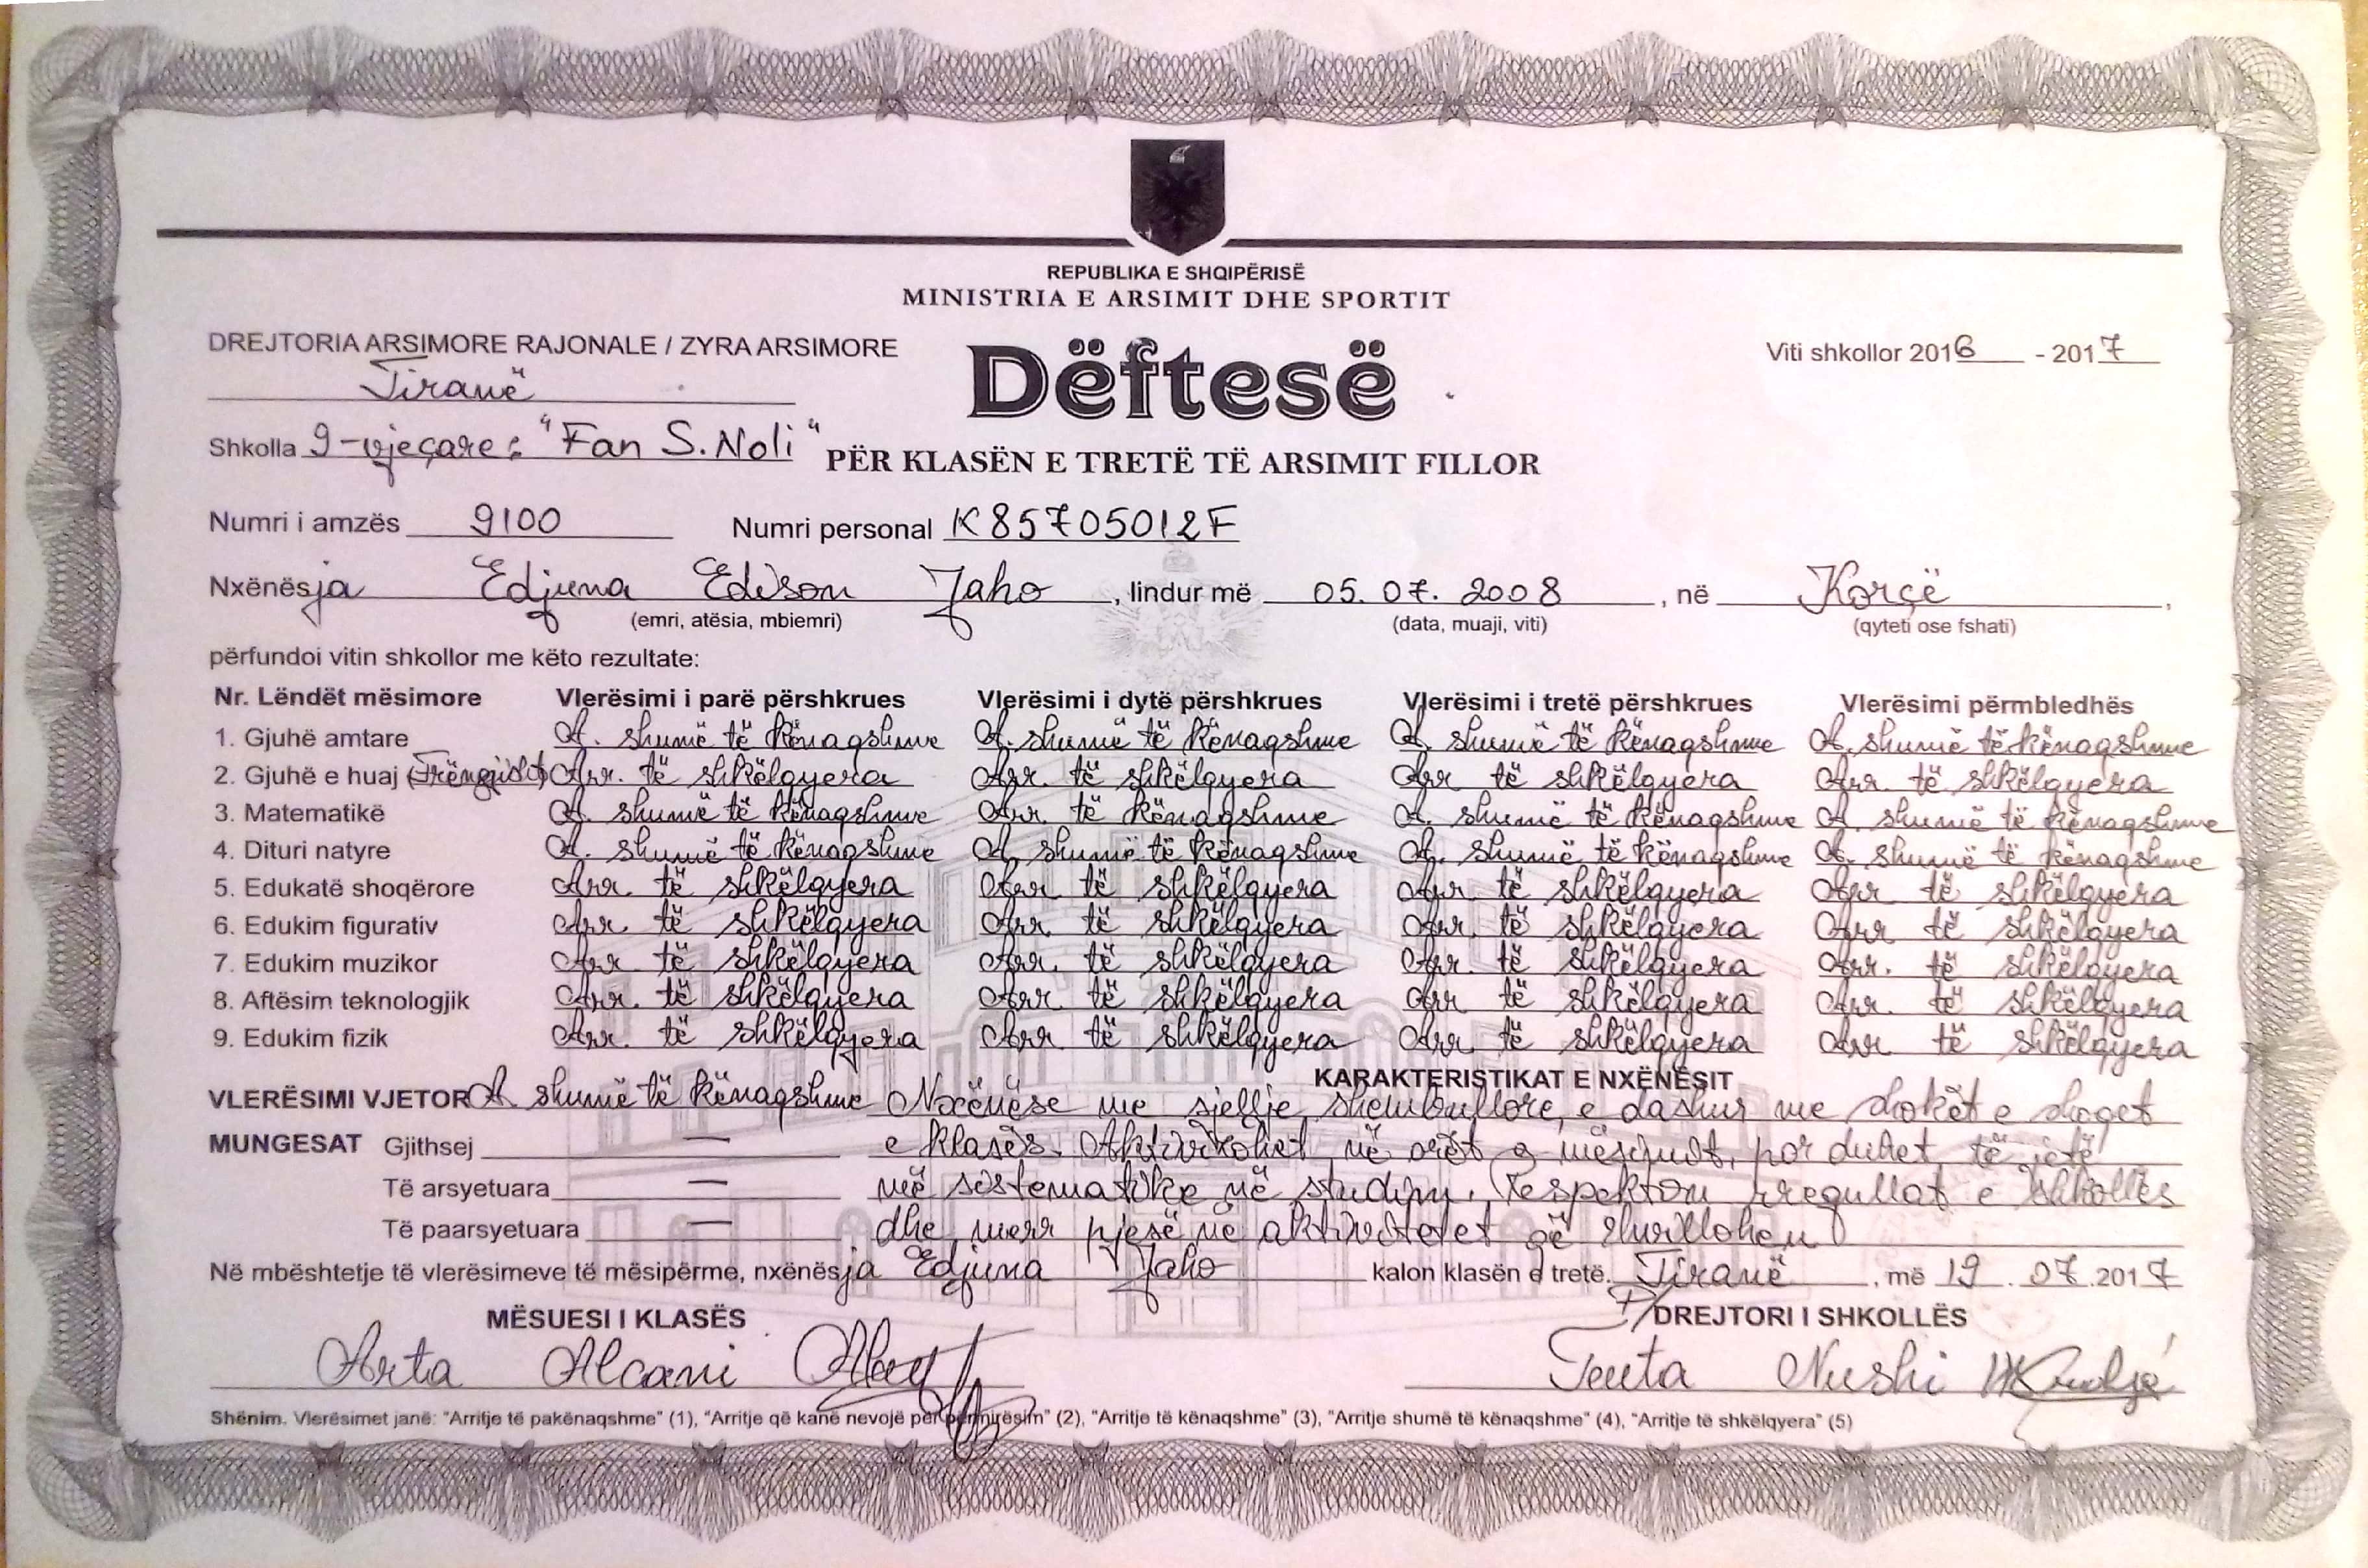 REPUBLIKA E SHQIPËRISË
MINISTRIA E ARSIMIT DHE SPORTIT
DREJTORIA ARSIMORE RAJONALE / ZYRA ARSIMORE
Tiranë
Dëftesë
Viti shkollor 2016 - 2017
Shkolla 9-vjeçare: "Fan S. Noli"
PËR KLASËN E TRETË TË ARSIMIT FILLOR
Numri i amzës 9100 Numri personal K85705012F
Nxënësja Edjuna Edison Jaho, lindur më 05. 07. 2008, në Korçë,
(emri, atësia, mbiemri) (data, muaji, viti) (qyteti ose fshati)
përfundoi vitin shkollor me këto rezultate:
Nr. Lëndët mësimore Vlerësimi i parë përshkrues Vlerësimi i dytë përshkrues Vlerësimi i tretë përshkrues Vlerësimi përmbledhës
1. Gjuhë amtare A. shumë të kënaqshme A. shumë të kënaqshme A. shumë të kënaqshme A. shumë të kënaqshme
2. Gjuhë e huaj (Frëngjisht) Arr. të shkëlqyera Arr. të shkëlqyera Arr të shkëlqyera Arr. të shkëlqyera
3. Matematikë A. shumë të kënaqshme Arr. të kënaqshme A. shumë të kënaqshme A. shumë të kënaqshme
4. Dituri natyre A. shumë të kënaqshme A. shumë të kënaqshme A. shumë të kënaqshme A. shumë të kënaqshme
5. Edukatë shoqërore Arr. të shkëlqyera Arr të shkëlqyera Arr të shkëlqyera Arr të shkëlqyera
6. Edukim figurativ Arr. të shkëlqyera Arr. të shkëlqyera Arr. të shkëlqyera Arr të shkëlqyera
7. Edukim muzikor Arr të shkëlqyera Arr. të shkëlqyera Arr. të shkëlqyera Arr. të shkëlqyera
8. Aftësim teknologjik Arr. të shkëlqyera Arr të shkëlqyera Arr të shkëlqyera Arr. të shkëlqyera
9. Edukim fizik Arr. të shkëlqyera Arr të shkëlqyera Arr. të shkëlqyera Arr të shkëlqyera
KARAKTERISTIKAT E NXËNËSIT
VLERËSIMI VJETOR A. shumë të kënaqshme Nxënëse me sjellje shembullore, e dashur me shokët e shoqet
MUNGESAT Gjithsej — e klasës. Aktivizohet në orët e mësimit, por duhet të jetë
Të arsyetuara — më sistematike në studim. Respekton rregullat e shkollës
Të paarsyetuara — dhe merr pjesë në aktivitetet që zhvillohen
Në mbështetje të vlerësimeve të mësipërme, nxënësja Edjuna Jaho kalon klasën e tretë. Tiranë, më 19.07.2017
MËSUESI I KLASËS DREJTORI I SHKOLLËS
Arta Alcani Teuta Nushi
Shënim. Vlerësimet janë: "Arritje të pakënaqshme" (1), "Arritje që kanë nevojë për përmirësim" (2), "Arritje të kënaqshme" (3), "Arritje shumë të kënaqshme" (4), "Arritje të shkëlqyera" (5)